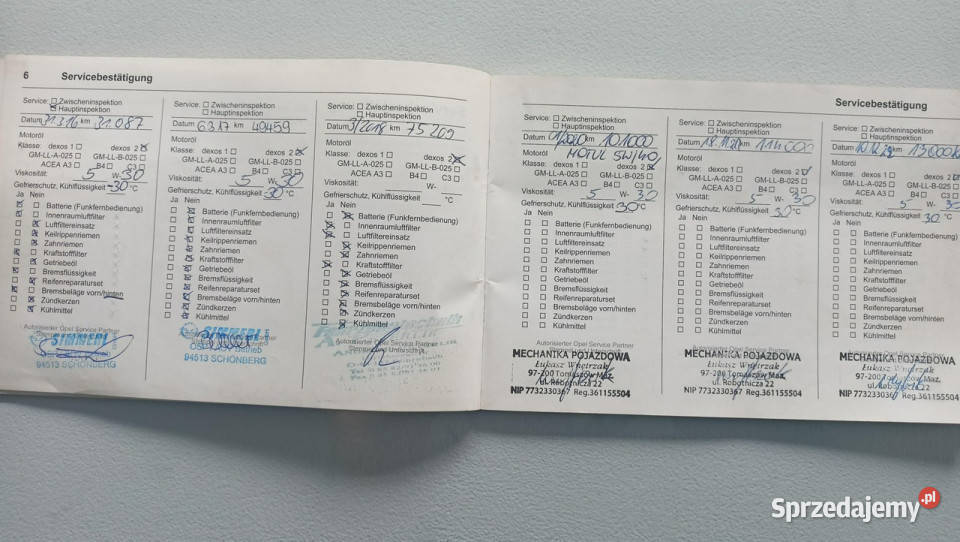 6 Servicebestätigung
Service: Zwischeninspektion
Hauptinspektion
Datum 31.3.16 km 31.087
Motoröl
Klasse: dexos 1 dexos 2
GM-LL-A-025 GM-LL-B-025
ACEA A3 B4 C3
Viskosität: 5 W- 30
Gefrierschutz, Kühlflüssigkeit -30 °C
Ja Nein
Batterie (Funkfernbedienung)
Innenraumluftfilter
Luftfiltereinsatz
Keilrippenriemen
Zahnriemen
Kraftstofffilter
Getriebeöl
Bremsflüssigkeit
Reifenreparaturset
Bremsbeläge vorn/hinten
Zündkerzen
Kühlmittel
Autorisierter Opel Service Partner
SIMMERL
94513 SCHÖNBERG
Service: Zwischeninspektion
Hauptinspektion
Datum 6.3.17 km 49459
Motoröl
Klasse: dexos 1 dexos 2
GM-LL-A-025 GM-LL-B-025
ACEA A3 B4 C3
Viskosität: 5 W- 30
Gefrierschutz, Kühlflüssigkeit 30 °C
Ja Nein
Batterie (Funkfernbedienung)
Innenraumluftfilter
Luftfiltereinsatz
Keilrippenriemen
Zahnriemen
Kraftstofffilter
Getriebeöl
Bremsflüssigkeit
Reifenreparaturset
Bremsbeläge vorn/hinten
Zündkerzen
Kühlmittel
SIMMERL
94513 SCHÖNBERG
Service: Zwischeninspektion
Hauptinspektion
Datum 3/2018 km 75209
Motoröl
Klasse: dexos 1 dexos 2
GM-LL-A-025 GM-LL-B-025
ACEA A3 B4 C3
Viskosität: W-
Gefrierschutz, Kühlflüssigkeit °C
Ja Nein
Batterie (Funkfernbedienung)
Innenraumluftfilter
Luftfiltereinsatz
Keilrippenriemen
Zahnriemen
Kraftstofffilter
Getriebeöl
Bremsflüssigkeit
Reifenreparaturset
Bremsbeläge vorn/hinten
Zündkerzen
Kühlmittel
Autorisierter Opel Service Partner
Servicebestätigung
Service: Zwischeninspektion
Hauptinspektion
Datum km 101000
Motoröl MOTUL 5W/40
Klasse: dexos 1 dexos 2
GM-LL-A-025 GM-LL-B-025
ACEA A3 B4 C3
Viskosität: 5 W- 30
Gefrierschutz, Kühlflüssigkeit 30 °C
Ja Nein
Batterie (Funkfernbedienung)
Innenraumluftfilter
Luftfiltereinsatz
Keilrippenriemen
Zahnriemen
Kraftstofffilter
Getriebeöl
Bremsflüssigkeit
Reifenreparaturset
Bremsbeläge vorn/hinten
Zündkerzen
Kühlmittel
Autorisierter Opel Service Partner
MECHANIKA POJAZDOWA
Łukasz Wnętrzak
97-200 Tomaszów Maz.
ul. Robotnicza 22
NIP 7732330367 Reg.361155504
Service: Zwischeninspektion
Hauptinspektion
Datum km 114000
Motoröl
Klasse: dexos 1 dexos 2
GM-LL-A-025 GM-LL-B-025
ACEA A3 B4 C3
Viskosität: 5 W- 30
Gefrierschutz, Kühlflüssigkeit 30 °C
Ja Nein
Batterie (Funkfernbedienung)
Innenraumluftfilter
Luftfiltereinsatz
Keilrippenriemen
Zahnriemen
Kraftstofffilter
Getriebeöl
Bremsflüssigkeit
Reifenreparaturset
Bremsbeläge vorn/hinten
Zündkerzen
Kühlmittel
Autorisierter Opel Service Partner
MECHANIKA POJAZDOWA
Łukasz Wnętrzak
97-200 Tomaszów Maz.
ul. Robotnicza 22
NIP 7732330367 Reg.361155504
Service: Zwischeninspektion
Hauptinspektion
Datum km
Motoröl
Klasse: dexos 1 dexos 2
GM-LL-A-025 GM-LL-B-025
ACEA A3 B4 C3
Viskosität: 5 W- 30
Gefrierschutz, Kühlflüssigkeit 30 °C
Ja Nein
Batterie (Funkfernbedienung)
Innenraumluftfilter
Luftfiltereinsatz
Keilrippenriemen
Zahnriemen
Kraftstofffilter
Getriebeöl
Bremsflüssigkeit
Reifenreparaturset
Bremsbeläge vorn/hinten
Zündkerzen
Kühlmittel
Autorisierter Opel Service Partner
MECHANIKA POJAZDOWA
Łukasz Wnętrzak
ul. Robotnicza 22
NIP 7732330367 Reg.361155504
Sprzedajemy.pl